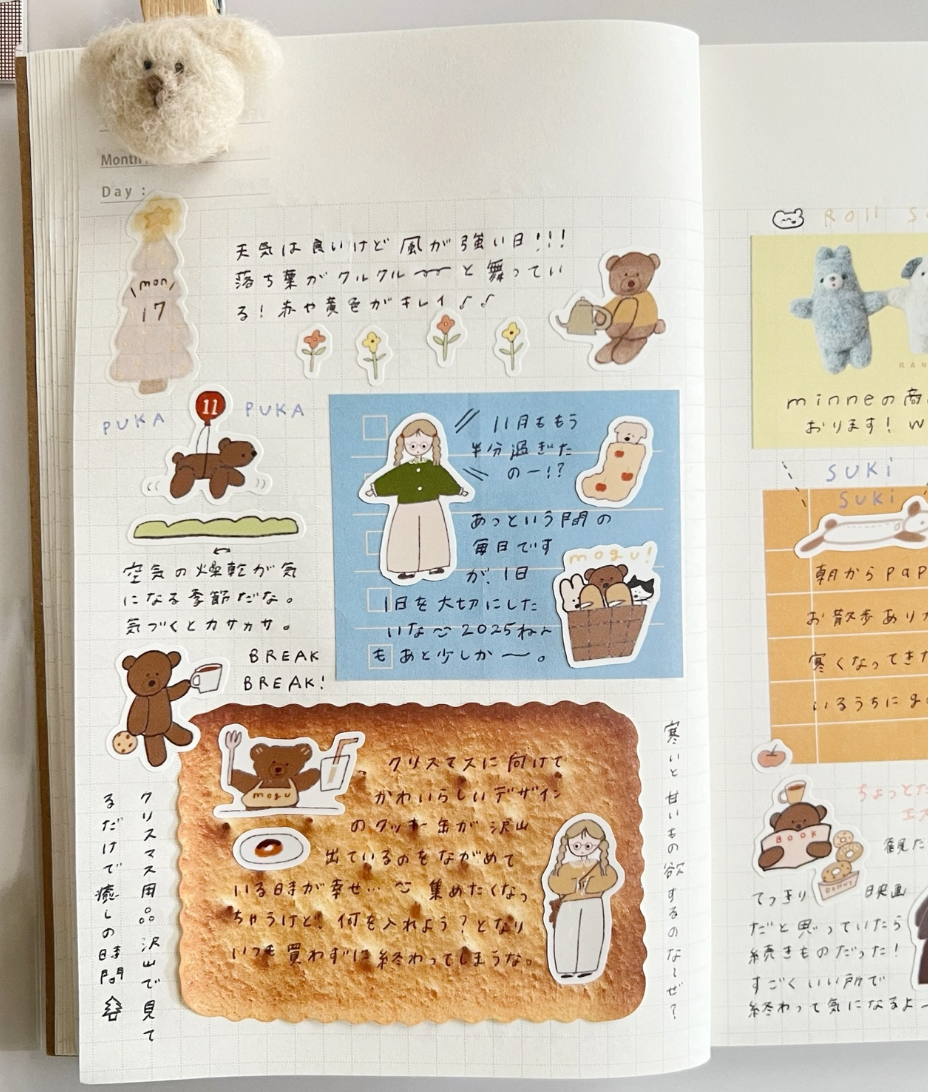 Month
Day :
\mon/
17
天気は良いけど風が強い日!!!
落ち葉がクルクル〜〜と舞ってい
る!赤や黄色がキレイ♪♪
PUKA
11
PUKA
空気の燥乾が気
になる季節だな。
気づくとカサカサ。
11月ももう
半分過ぎた
のー!?
あっという間の
毎日です
が、1日
1日を大切にした
いな 2025ねん
も あと少しか〜。
mogu!
BREAK
BREAK!
mogu
クリスマスに向けて
かわいらしいデザイン
のクッキー缶が沢山
出ているのをながめて
いる時が幸せ… 集めたくなっ
ちゃうけど、何を入れよう?となり
いつも買わずに終わってしまうな。
クリスマス用品沢山で見て
るだけで癒しの時間
寒いと甘いもの欲するのな〜ぜ?
Roll
minneの商
おります! W
SUKI
SUKI
朝から pap
お散歩あり
寒くなってきた
いるうちに go
ちょっとた
エス
BOOK
DONUT
観た
てっきり 映画
だと思っていたら
続きものだった!
すごくいい所で
終わって気になるよ〜